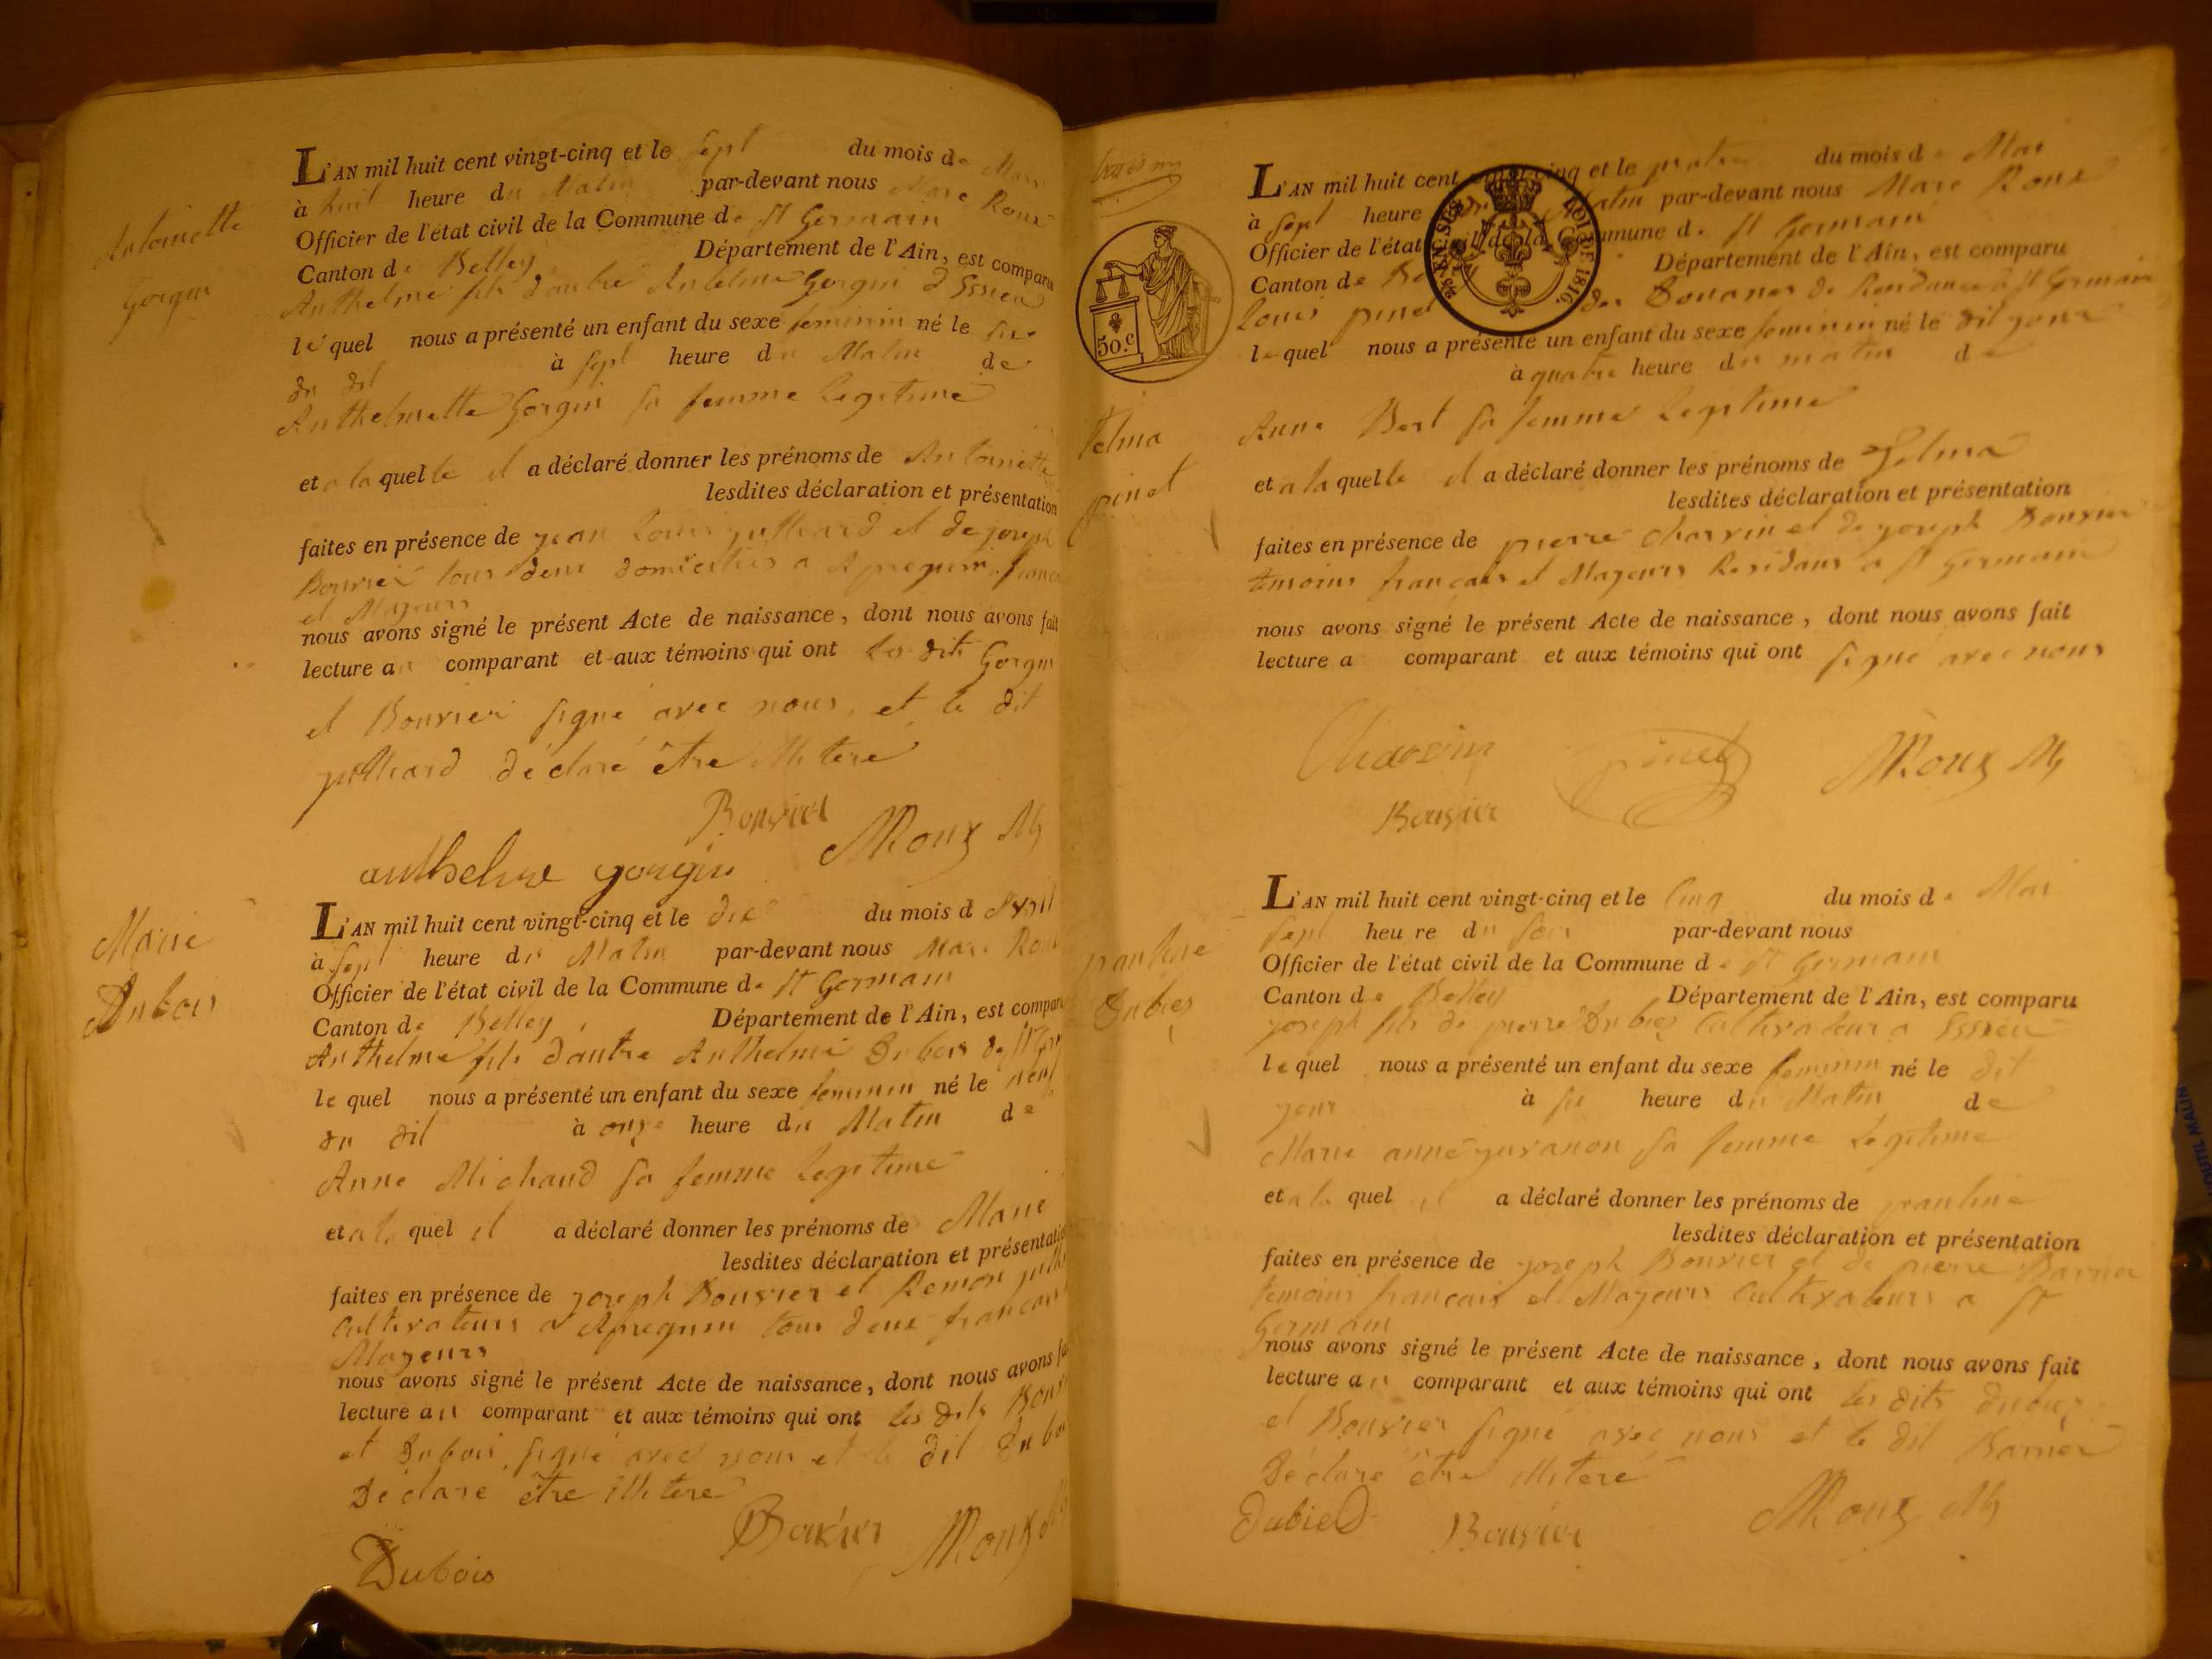 Antoinette
Gorgin
L'AN mil huit cent vingt-cinq et le sept du mois de Mars
à huit heure du Matin par-devant nous Marc Roux
Officier de l'état civil de la Commune de St Germain
Canton de Belley Département de l'Ain, est comparu
Anthelme fils d'autre Antelme Gorgin d Essieu
lequel nous a présenté un enfant du sexe feminin né le six
du dit à sept heure du Matin de
Anthelmette Gorgin sa femme Legitime
et a la quelle il a déclaré donner les prénoms de Antoinette
lesdites déclaration et présentation
faites en présence de jean Louis juilliard et de joseph
Bouvier tous deux domiciliés a Apregnin
et Majeurs
nous avons signé le présent Acte de naissance, dont nous avons fait
lecture au comparant et aux témoins qui ont Les dits Gorgin
et Bouvier signé avec nous, et le dit
déclaré être illitere
Bouvier
MRoux
anthelme gorgin
Marie
Dubois
L'AN mil huit cent vingt-cinq et le dix du mois d Avril
à sept heure du Matin par-devant nous Marc Roux
Officier de l'état civil de la Commune de St Germain
Canton de Belley, Département de l'Ain, est comparu
Anthelme fils d'autre Anthelme Dubois de
le quel nous a présenté un enfant du sexe feminin né le neuf
du dit à onze heure du Matin de
Anne Michaud sa femme Legitime
et a la quel il a déclaré donner les prénoms de Marie
lesdites déclaration et présentation
faites en présence de joseph Bouvier et Remon
Cultivateurs a Apregnin tous deux francais
Majeurs
nous avons signé le présent Acte de naissance, dont nous avons
lecture au comparant et aux témoins qui ont les dits
et Dubois, signé avec nous et le dit
Déclaré être illitere
MRoux
Dubois
50.c
EN SUS
LOI DE 1816
Telma
pinet
L'AN mil huit cent vingt-cinq et le quatre du mois de Mai
à sept heure du Matin par-devant nous Marc Roux
Officier de l'état civil de la Commune de St Germain
Canton de Département de l'Ain, est comparu
Louis pinet des Douanes de Residance a St Germain
lequel nous a présenté un enfant du sexe feminin né le dit jour
à quatre heure du matin de
Anne Bert sa femme Legitime
et a la quelle il a déclaré donner les prénoms de Telma
lesdites déclaration et présentation
faites en présence de pierre charvin et de joseph Bouvier
temoins francais et Majeurs Residans a St Germain
nous avons signé le présent Acte de naissance, dont nous avons fait
lecture a comparant et aux témoins qui ont signé avec nous
Charvin
pinet
MRoux
Bouvier
pauline
Dubiez
L'AN mil huit cent vingt-cinq et le Cinq du mois de Mai
sept heure du soir par-devant nous
Officier de l'état civil de la Commune de St Germain
Canton de Belley Département de l'Ain, est comparu
joseph fils de pierre Dubiez Cultivateur a Essieu
le quel nous a présenté un enfant du sexe feminin né le dit
jour à six heure du Matin de
Marie anne juvanon sa femme Legitime
et a la quel il a déclaré donner les prénoms de pauline
lesdites déclaration et présentation
faites en présence de joseph Bouvier et de pierre
temoins francais et Majeurs Cultivateurs a St
Germain
nous avons signé le présent Acte de naissance, dont nous avons fait
lecture au comparant et aux témoins qui ont les dits
et Bouvier signé avec nous et le dit
Déclaré être illiteré
Dubied
Bouvier
MRoux